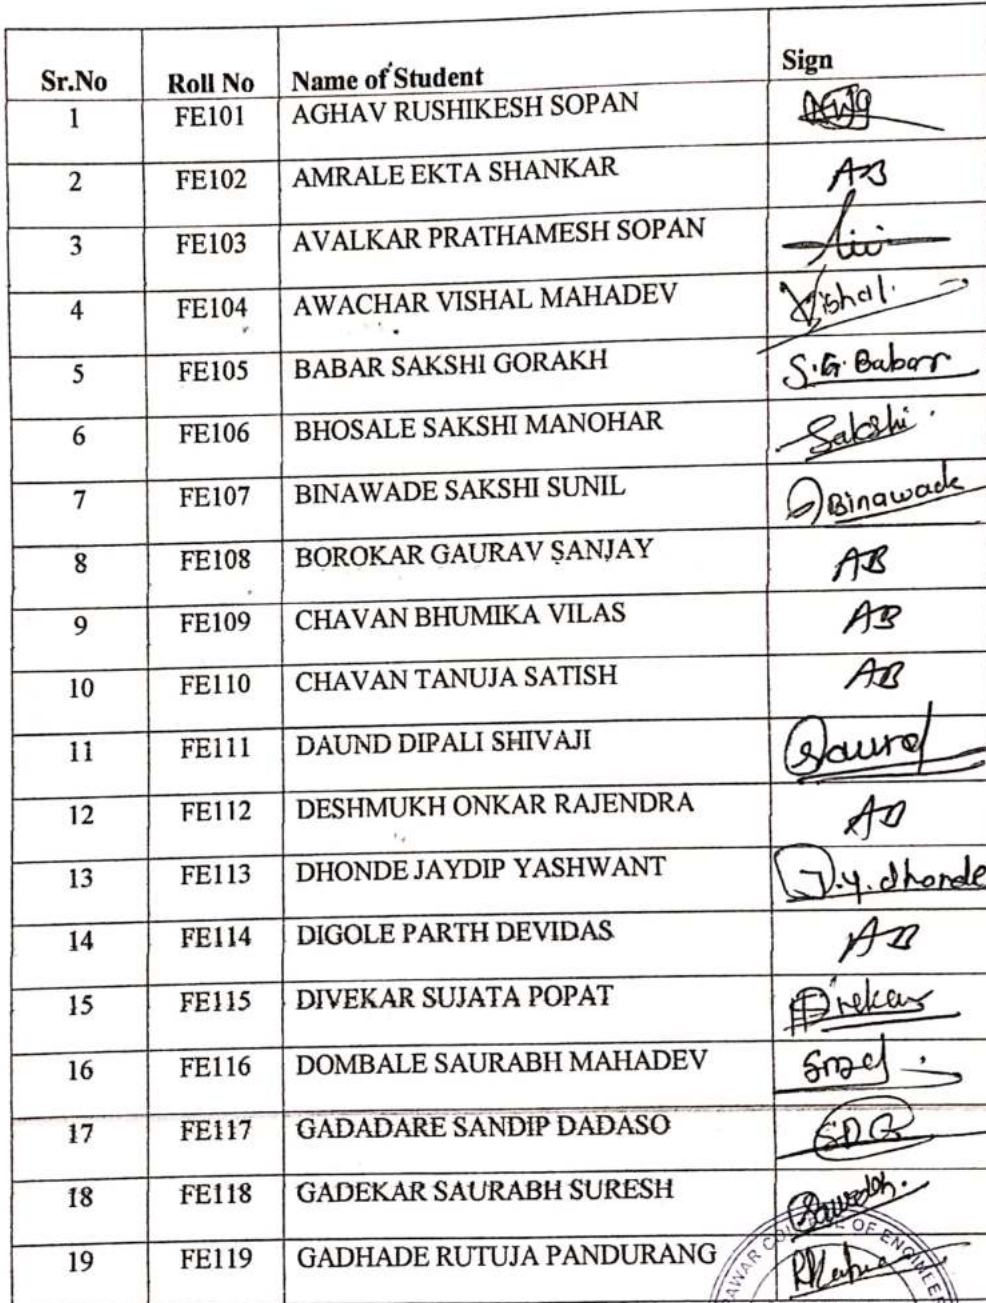 Sr.No Roll No Name of Student Sign
1 FE101 AGHAV RUSHIKESH SOPAN
2 FE102 AMRALE EKTA SHANKAR AB
3 FE103 AVALKAR PRATHAMESH SOPAN
4 FE104 AWACHAR VISHAL MAHADEV Vishal.
5 FE105 BABAR SAKSHI GORAKH S.G. Babar
6 FE106 BHOSALE SAKSHI MANOHAR Sakshi
7 FE107 BINAWADE SAKSHI SUNIL Binawade
8 FE108 BOROKAR GAURAV SANJAY AB
9 FE109 CHAVAN BHUMIKA VILAS AB
10 FE110 CHAVAN TANUJA SATISH AB
11 FE111 DAUND DIPALI SHIVAJI
12 FE112 DESHMUKH ONKAR RAJENDRA AB
13 FE113 DHONDE JAYDIP YASHWANT J.y. dhonde
14 FE114 DIGOLE PARTH DEVIDAS AB
15 FE115 DIVEKAR SUJATA POPAT
16 FE116 DOMBALE SAURABH MAHADEV
17 FE117 GADADARE SANDIP DADASO SDG
18 FE118 GADEKAR SAURABH SURESH
19 FE119 GADHADE RUTUJA PANDURANG
OF